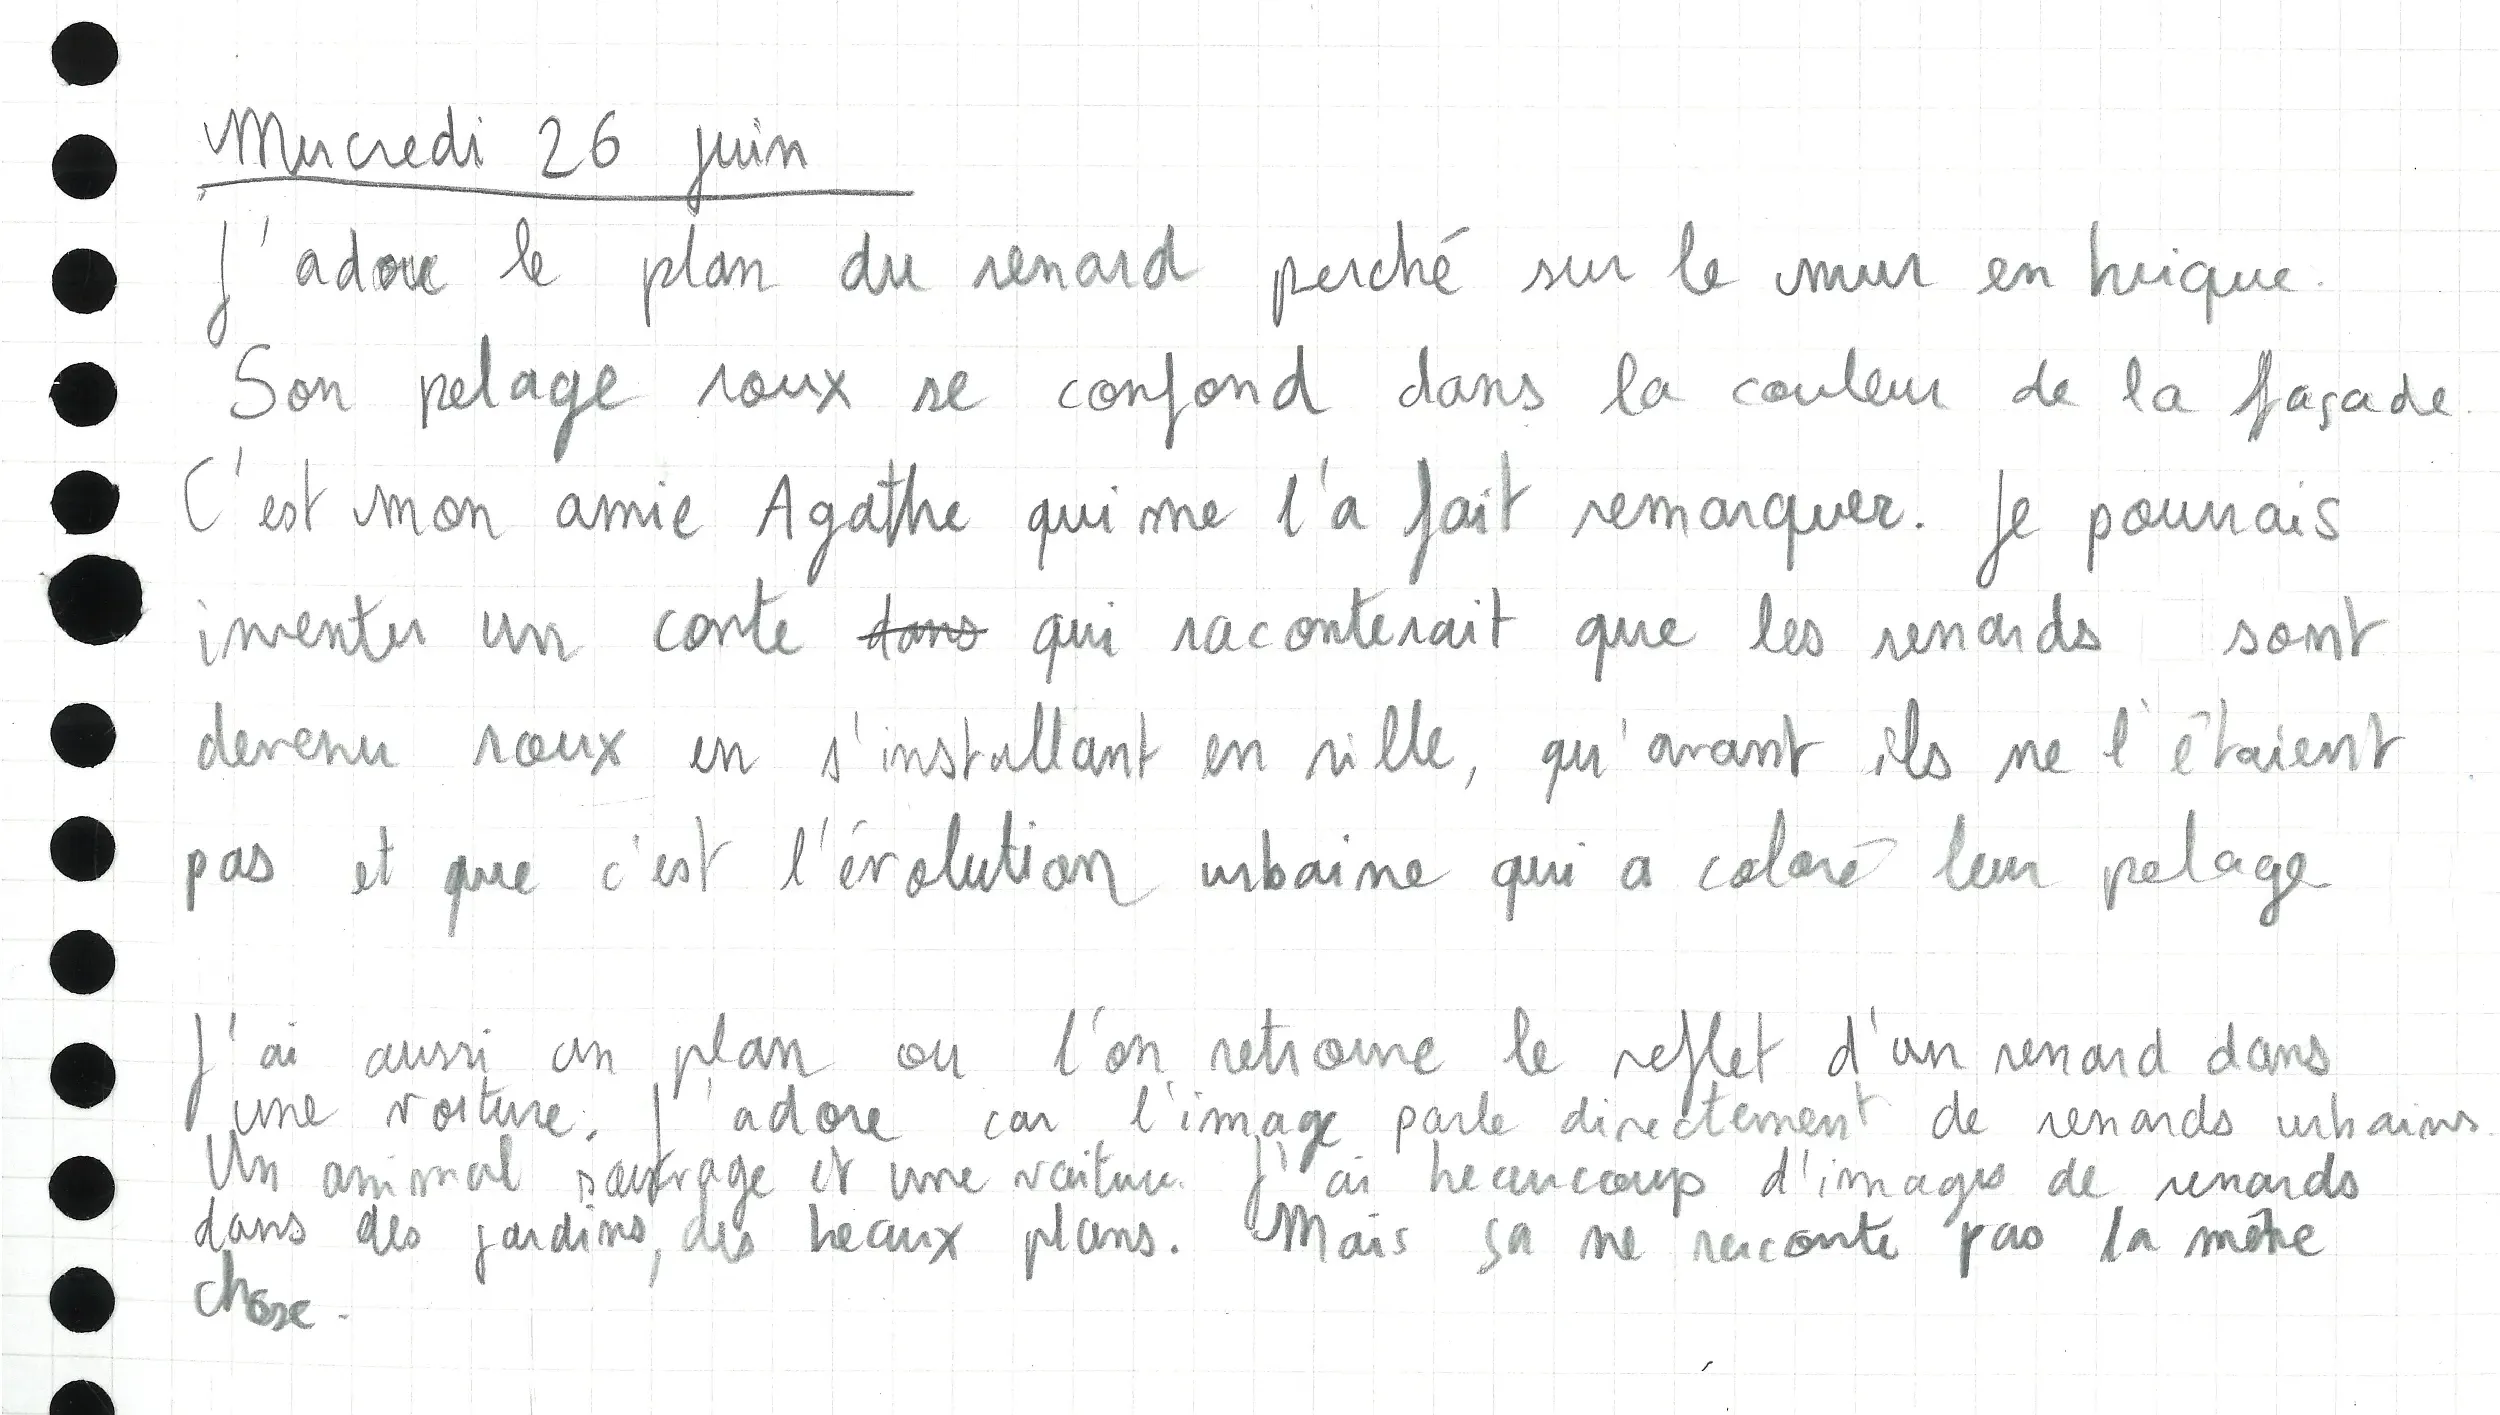 Mercredi 26 juin
J'adore le plan du renard perché sur le mur en brique.
Son pelage roux se confond dans la couleur de la façade.
C'est mon amie Agathe qui me l'a fait remarquer. Je pourrais
inventer un conte dans qui raconterait que les renards sont
devenu roux en s'installant en ville, qu'avant ils ne l'étaient
pas et que c'est l'évolution urbaine qui a coloré leur pelage
J'ai aussi un plan ou l'on retrouve le reflet d'un renard dans
une voiture. J'adore car l'image parle directement de renards urbains.
Un animal sauvage et une voiture. J'ai beaucoup d'images de renards
dans des jardins, des beaux plans. Mais ça ne raconte pas la même
chose.